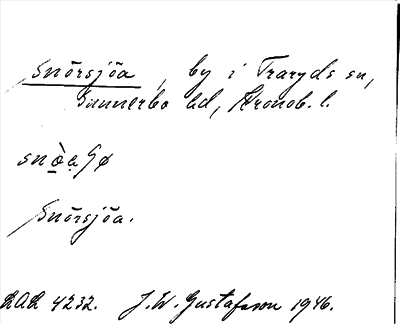 Snörsjöa, by i Traryds sn,
Sunnerbo hd, Kronob. l.
Snörsjöa.
4232. J. W. Gustafsson 1946.